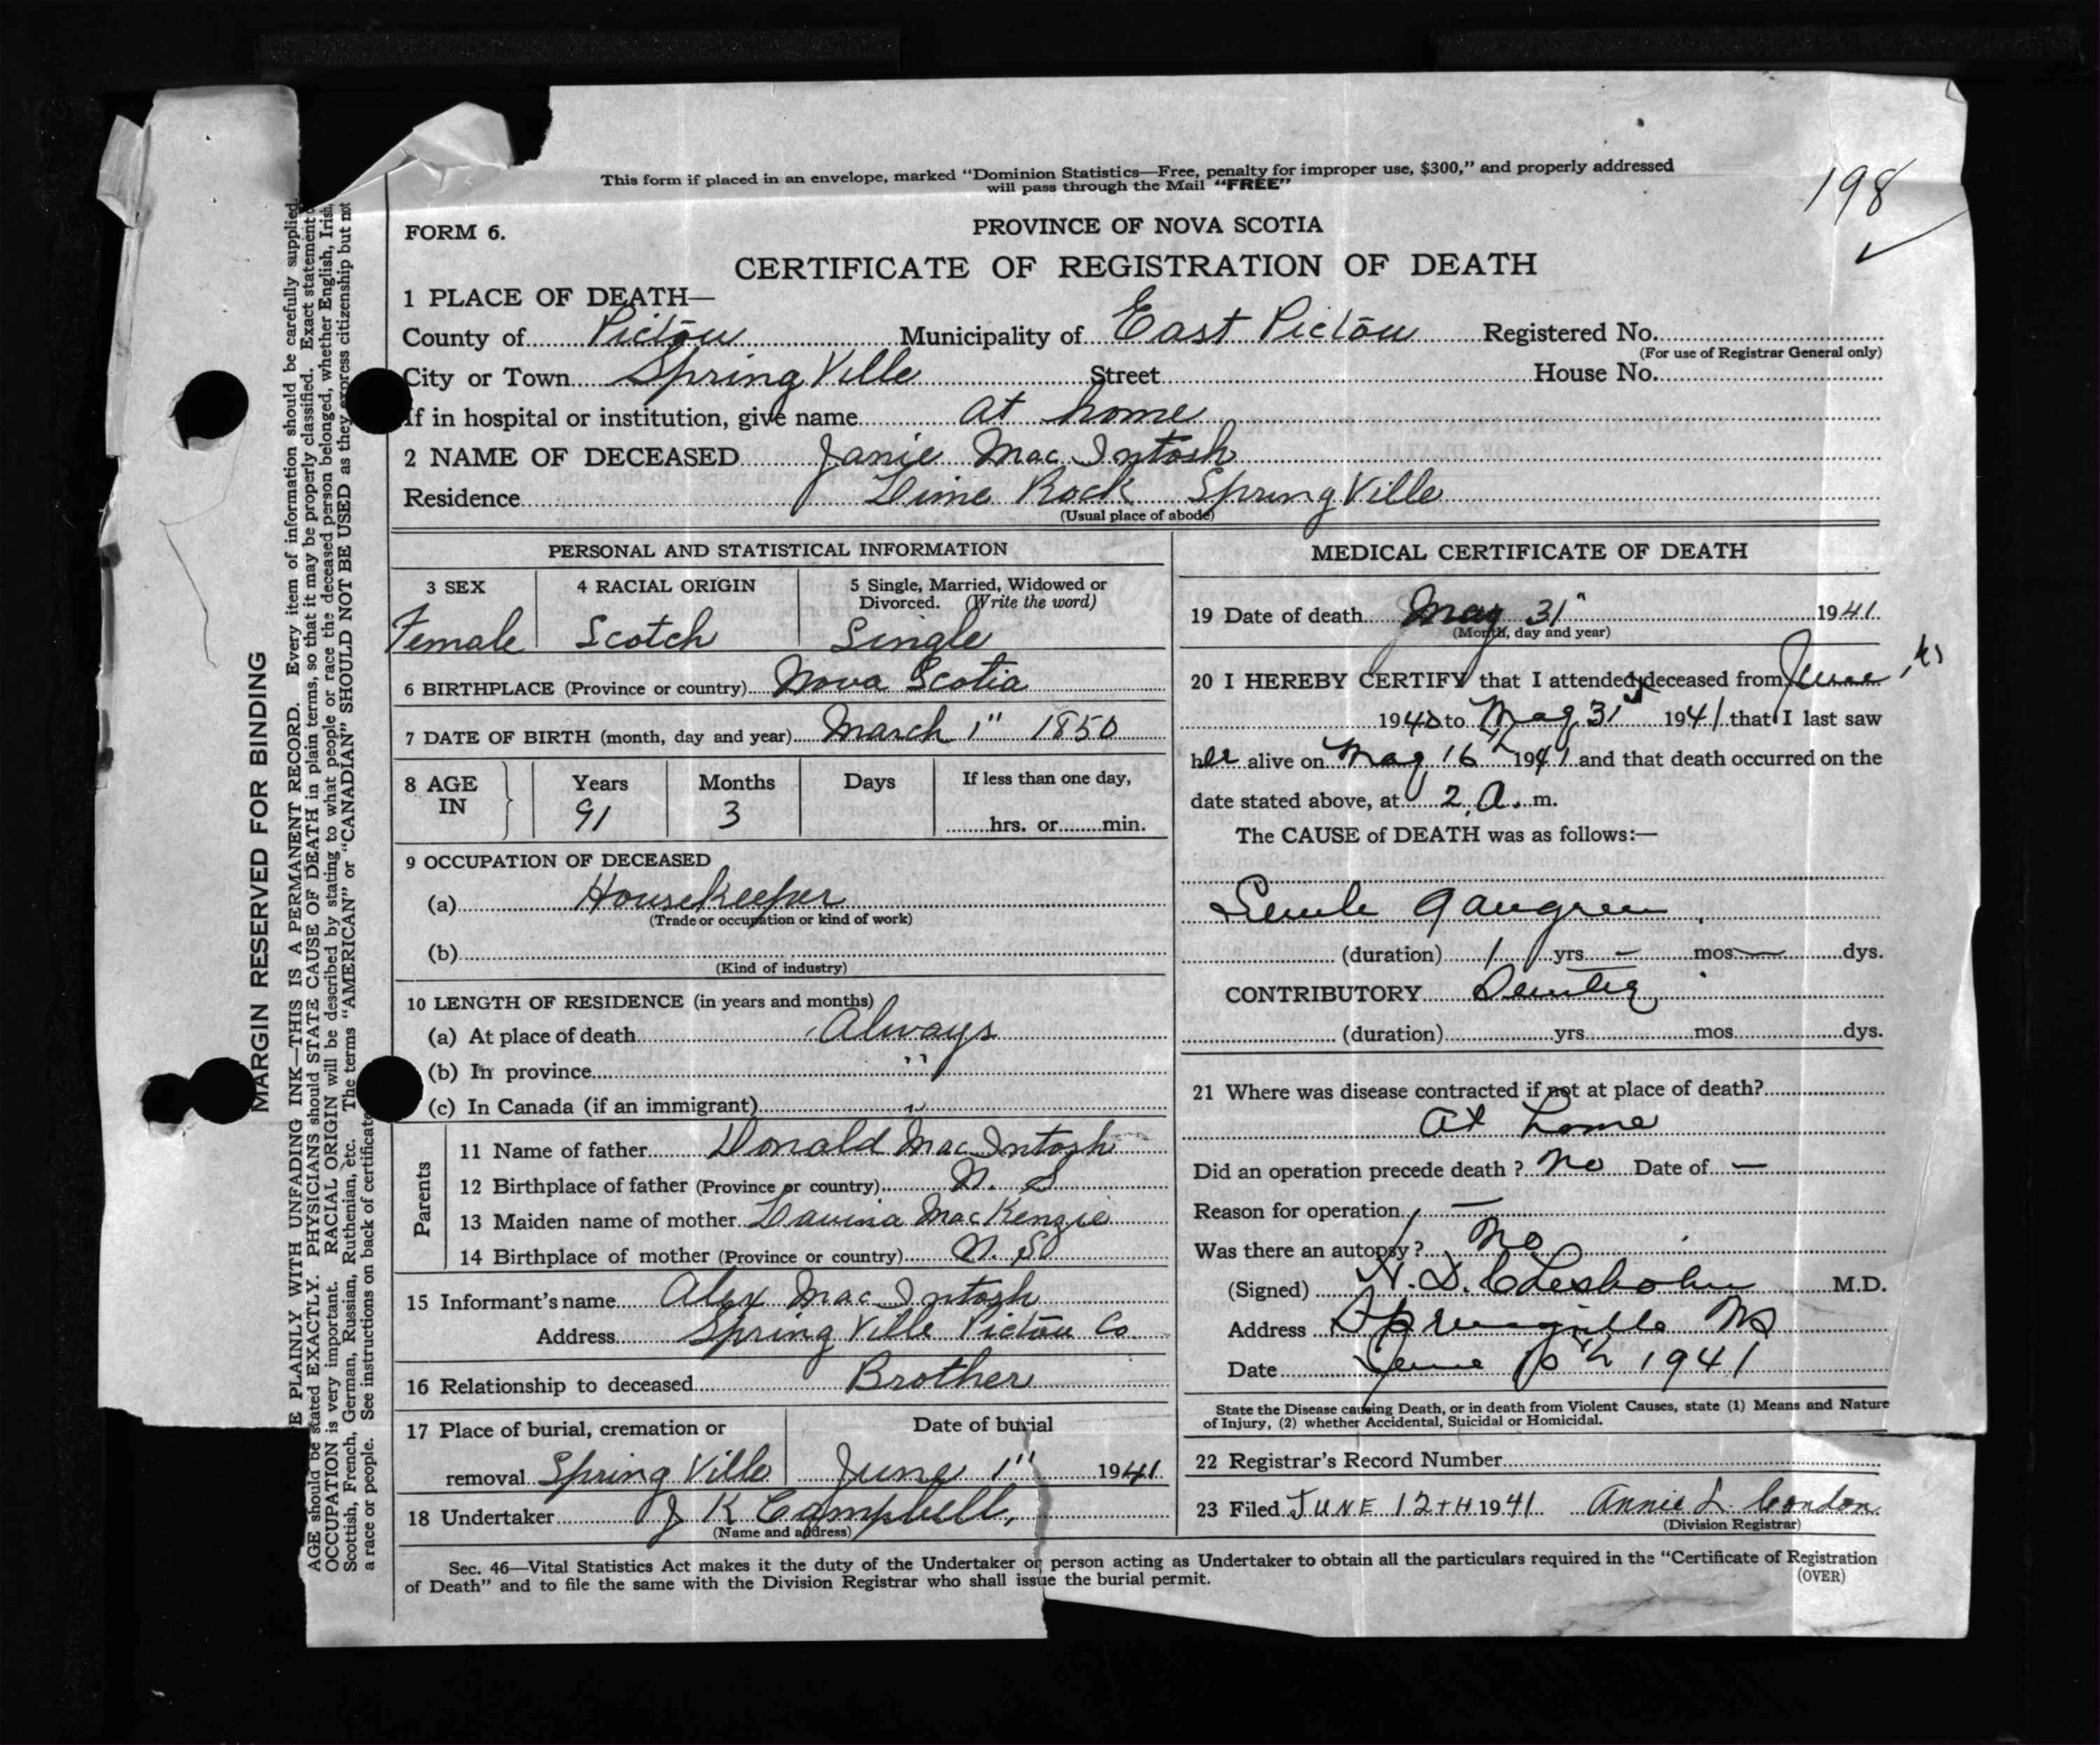 This form if placed in an envelope, marked “Dominion Statistics—Free, penalty for improper use, $300,” and properly addressed
will pass through the Mail “FREE”
198
FORM 6.
PROVINCE OF NOVA SCOTIA
CERTIFICATE OF REGISTRATION OF DEATH
1 PLACE OF DEATH—
County of Pictou Municipality of East Pictou Registered No.
(For use of Registrar General only)
City or Town Spring Ville Street House No.
If in hospital or institution, give name at home
2 NAME OF DECEASED Janie Mac Intosh
Residence Lime Rock Spring Ville
(Usual place of abode)
PERSONAL AND STATISTICAL INFORMATION
3 SEX 4 RACIAL ORIGIN 5 Single, Married, Widowed or
Divorced. (Write the word)
Female Scotch Single
6 BIRTHPLACE (Province or country) Nova Scotia
7 DATE OF BIRTH (month, day and year) March 1" 1850
8 AGE Years Months Days If less than one day,
IN 91 3 hrs. or min.
9 OCCUPATION OF DECEASED
(a) Housekeeper
(Trade or occupation or kind of work)
(b)
(Kind of industry)
10 LENGTH OF RESIDENCE (in years and months)
(a) At place of death Always
(b) In province "
(c) In Canada (if an immigrant) "
Parents
11 Name of father Donald Mac Intosh
12 Birthplace of father (Province or country) N. S
13 Maiden name of mother MacKenzie
14 Birthplace of mother (Province or country) N. S
15 Informant's name Alex Mac Intosh
Address Spring Ville Pictou Co
16 Relationship to deceased Brother
17 Place of burial, cremation or Date of burial
removal Spring Ville June 1" 1941
18 Undertaker J K Campbell,
(Name and address)
MEDICAL CERTIFICATE OF DEATH
19 Date of death May 31" 1941
(Month, day and year)
20 I HEREBY CERTIFY that I attended deceased from June
1940 to May 31 1941 that I last saw
her alive on May 16 1941 and that death occurred on the
date stated above, at 2 A. m.
The CAUSE of DEATH was as follows:—
Senile gangrene
(duration) 1 yrs — mos — dys.
CONTRIBUTORY
(duration) yrs mos dys.
21 Where was disease contracted if not at place of death?
At home
Did an operation precede death ? No Date of —
Reason for operation —
Was there an autopsy ? No
(Signed) M.D.
Address Springville NS
Date June 10th 1941
State the Disease causing Death, or in death from Violent Causes, state (1) Means and Nature
of Injury, (2) whether Accidental, Suicidal or Homicidal.
22 Registrar's Record Number
23 Filed JUNE 12TH 1941 Annie L. Condon
(Division Registrar)
Sec. 46—Vital Statistics Act makes it the duty of the Undertaker or person acting as Undertaker to obtain all the particulars required in the “Certificate of Registration
of Death” and to file the same with the Division Registrar who shall issue the burial permit.
(OVER)
MARGIN RESERVED FOR BINDING
E PLAINLY WITH UNFADING INK—THIS IS A PERMANENT RECORD. Every item of information should be carefully supplied.
AGE should be stated EXACTLY. PHYSICIANS should STATE CAUSE OF DEATH in plain terms, so that it may be properly classified. Exact statement
OCCUPATION is very important. RACIAL ORIGIN will be described by stating to what people or race the deceased person belonged, whether English, Irish,
Scottish, French, German, Russian, Ruthenian, etc. The terms “AMERICAN” or “CANADIAN” SHOULD NOT BE USED as they express citizenship but not
a race or people. See instructions on back of certificate